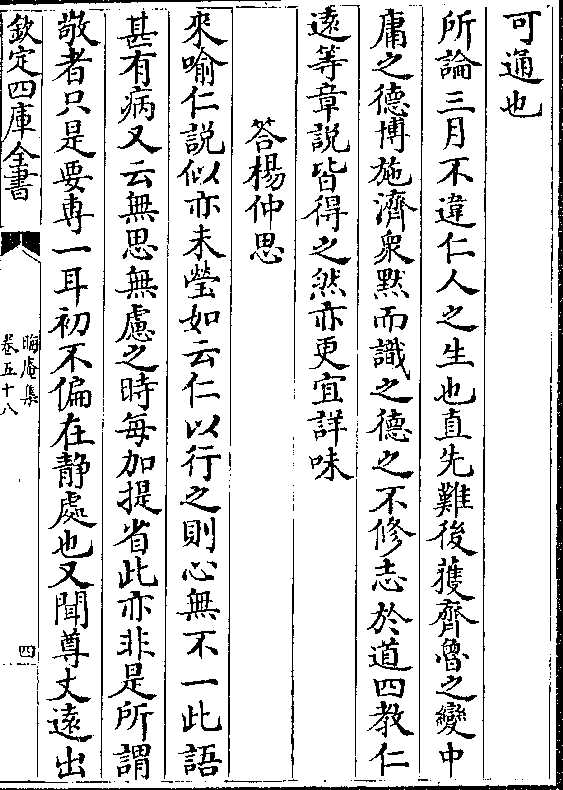 可通也
所論三月不違仁人之生也直先難後獲齊魯之變中
庸之德博施濟衆黙而識之德之不修志於道四教仁
遠等章説皆得之然亦更宜詳味
答楊仲思
來喻仁説似亦未瑩如云仁以行之則心無不一此語
甚有病又云無思無慮之時每加提省此亦非是所謂
敬者只是要専一耳初不偏在静處也又聞尊丈遠出
欽定四庫全書
晦庵集
卷五十八
四